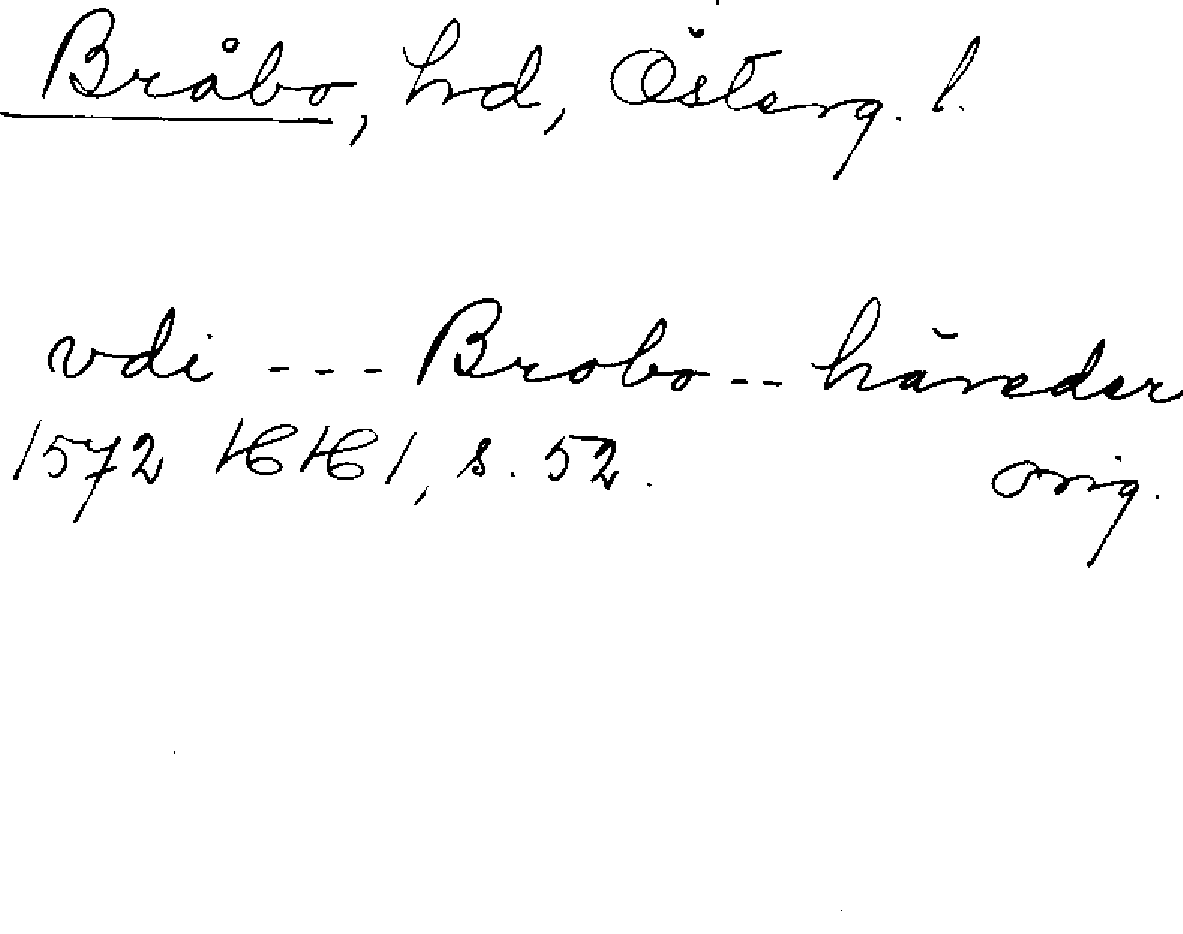 Bråbo, hrd, Österg. l.
vdi --- Brobo -- häreder
1572 HH 1, s. 52. orig.